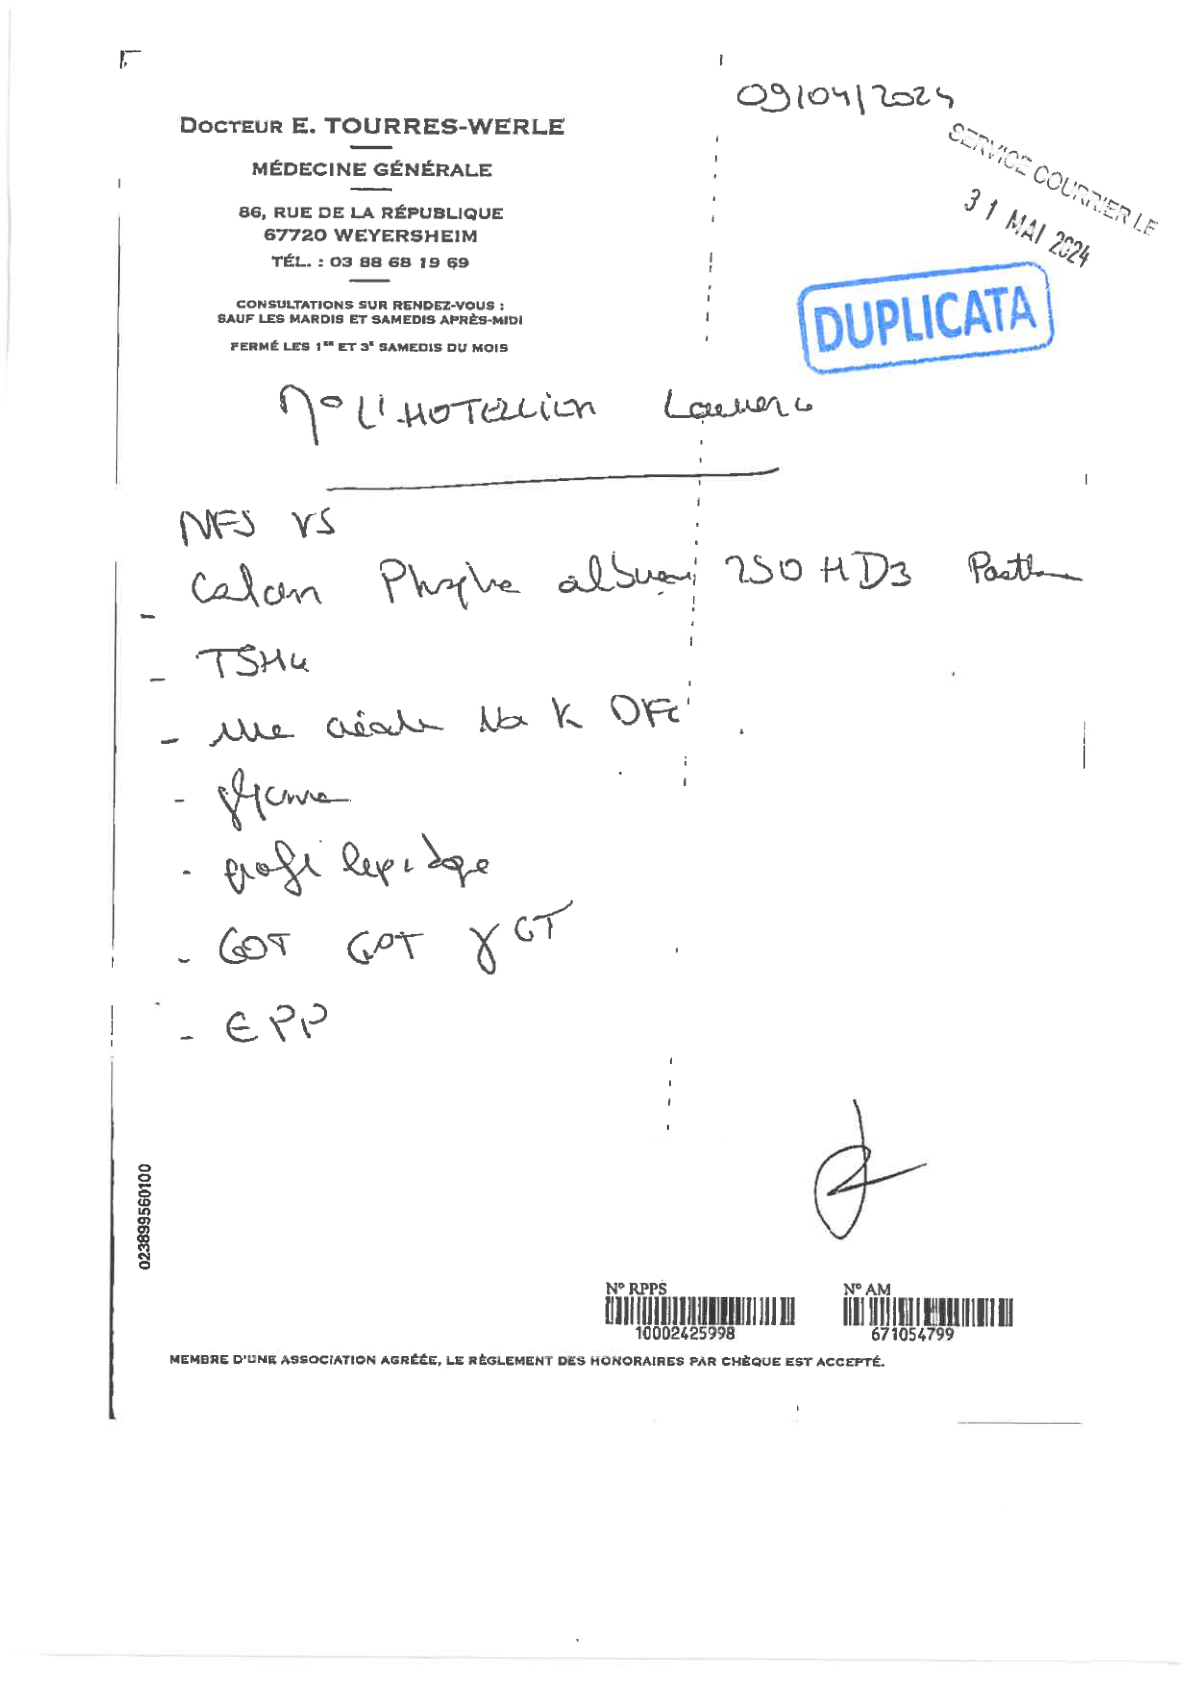 09/04/2024
DOCTEUR E. TOURRES-WERLE
MÉDECINE GÉNÉRALE
86, RUE DE LA RÉPUBLIQUE
67720 WEYERSHEIM
TÉL. : 03 88 68 19 69
CONSULTATIONS SUR RENDEZ-VOUS :
SAUF LES MARDIS ET SAMEDIS APRÈS-MIDI
FERMÉ LES 1er ET 3e SAMEDIS DU MOIS
SERVICE COURRIER LE
31 MAI 2024
DUPLICATA
L'HOTELLIER
NFS VS
- Calcium Phosphore albumine 25OHD3
- TSHu
- urée créat Na K DFG
- glycémie
- profil lipidique
- GOT GPT γGT
- EPP
023899560100
N° RPPS
10002425998
N° AM
671054799
MEMBRE D'UNE ASSOCIATION AGRÉÉE, LE RÈGLEMENT DES HONORAIRES PAR CHÈQUE EST ACCEPTÉ.